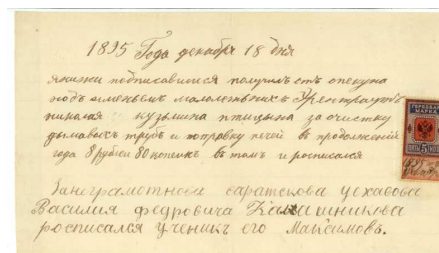 1895 Года декабря 18 дня
я ниже подписавшися получил отъ опекуна
надъ имением малолетныхъ
николая кузьмича птицына за очистку
дымовыхъ трубъ и поправку печей въ продолжении
года 8 рубли 80 копеикъ, въ том и росписался
За неграмотнова саратскова цехавова
Василия Федровича Калашникова
росписался ученикъ его Максимовъ.
ГЕРБОВАЯ
МАРКА
5